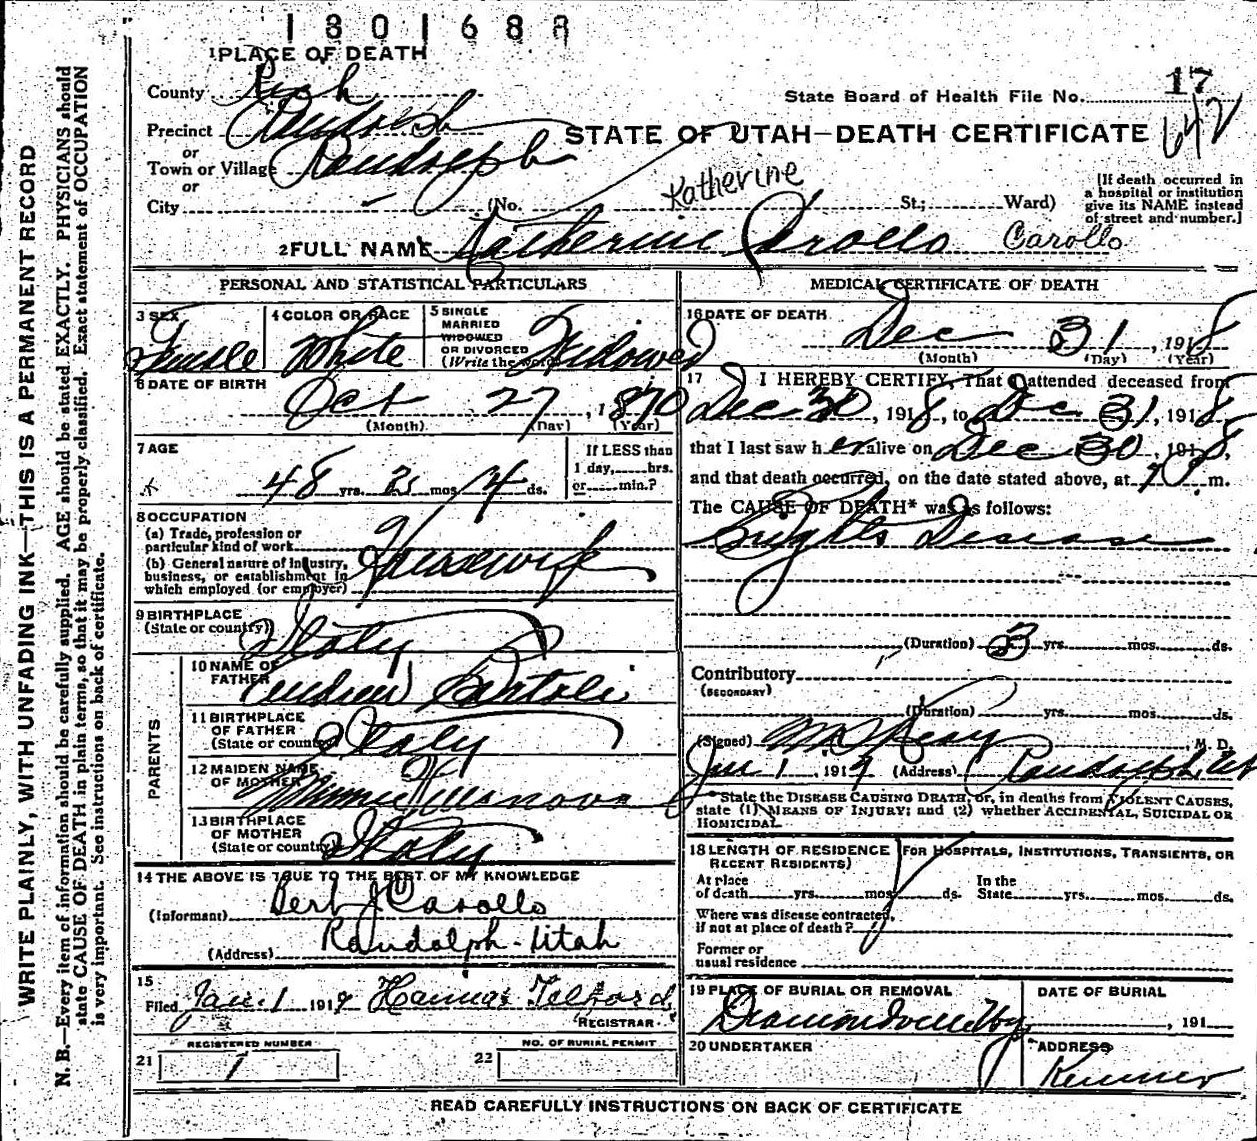 1801688
1 PLACE OF DEATH
County Rich
State Board of Health File No. 17
Precinct Randolph
STATE OF UTAH—DEATH CERTIFICATE 642
or
Town or Village Randolph
or
City (No. Katherine St; Ward)
[If death occurred in
a hospital or institution
give its NAME instead
of street and number.]
2 FULL NAME Katherine Carollo Carollo
PERSONAL AND STATISTICAL PARTICULARS
3 SEX Female
4 COLOR OR RACE White
5 SINGLE
MARRIED
WIDOWED
OR DIVORCED
(Write the word) Widowed
6 DATE OF BIRTH
Oct 27, 1870
(Month) (Day) (Year)
7 AGE
48 yrs. 2 mos. 4 ds.
If LESS than
1 day, hrs.
or min.?
8 OCCUPATION
(a) Trade, profession or
particular kind of work
(b) General nature of industry,
business, or establishment in
which employed (or employer)
Housewife
9 BIRTHPLACE
(State or country) Italy
PARENTS
10 NAME OF
FATHER
11 BIRTHPLACE
OF FATHER
(State or country) Italy
12 MAIDEN NAME
OF MOTHER Minnie
13 BIRTHPLACE
OF MOTHER
(State or country) Italy
14 THE ABOVE IS TRUE TO THE BEST OF MY KNOWLEDGE
(Informant) Bert J Carollo
(Address) Randolph - Utah
15
Filed Jan. 1 1919 Telford
REGISTRAR.
REGISTERED NUMBER
21 1
NO. OF BURIAL PERMIT
22
MEDICAL CERTIFICATE OF DEATH
16 DATE OF DEATH
Dec 31, 1918
(Month) (Day) (Year)
17 I HEREBY CERTIFY, That I attended deceased from
Dec 30, 1918, to Dec 31, 1918,
that I last saw her alive on Dec 30, 1918,
and that death occurred, on the date stated above, at m.
The CAUSE OF DEATH* was as follows:
Brights Disease
(Duration) 3 yrs. mos. ds.
Contributory
(SECONDARY)
(Duration) yrs. mos. ds.
(Signed) M. D.
Jan 1, 1919 (Address) Randolph, Ut
*State the DISEASE CAUSING DEATH, or, in deaths from VIOLENT CAUSES,
state (1) MEANS OF INJURY; and (2) whether ACCIDENTAL, SUICIDAL OR
HOMICIDAL.
18 LENGTH OF RESIDENCE (FOR HOSPITALS, INSTITUTIONS, TRANSIENTS, OR
RECENT RESIDENTS)
At place
of death yrs. mos. ds.
In the
State yrs. mos. ds.
Where was disease contracted,
if not at place of death?
Former or
usual residence
19 PLACE OF BURIAL OR REMOVAL
Diamondville Wy
DATE OF BURIAL
, 191
20 UNDERTAKER
ADDRESS
Kemmer
READ CAREFULLY INSTRUCTIONS ON BACK OF CERTIFICATE
WRITE PLAINLY, WITH UNFADING INK—THIS IS A PERMANENT RECORD
N. B.—Every item of information should be carefully supplied. AGE should be stated EXACTLY. PHYSICIANS should
state CAUSE OF DEATH in plain terms, so that it may be properly classified. Exact statement of OCCUPATION
is very important. See instructions on back of certificate.